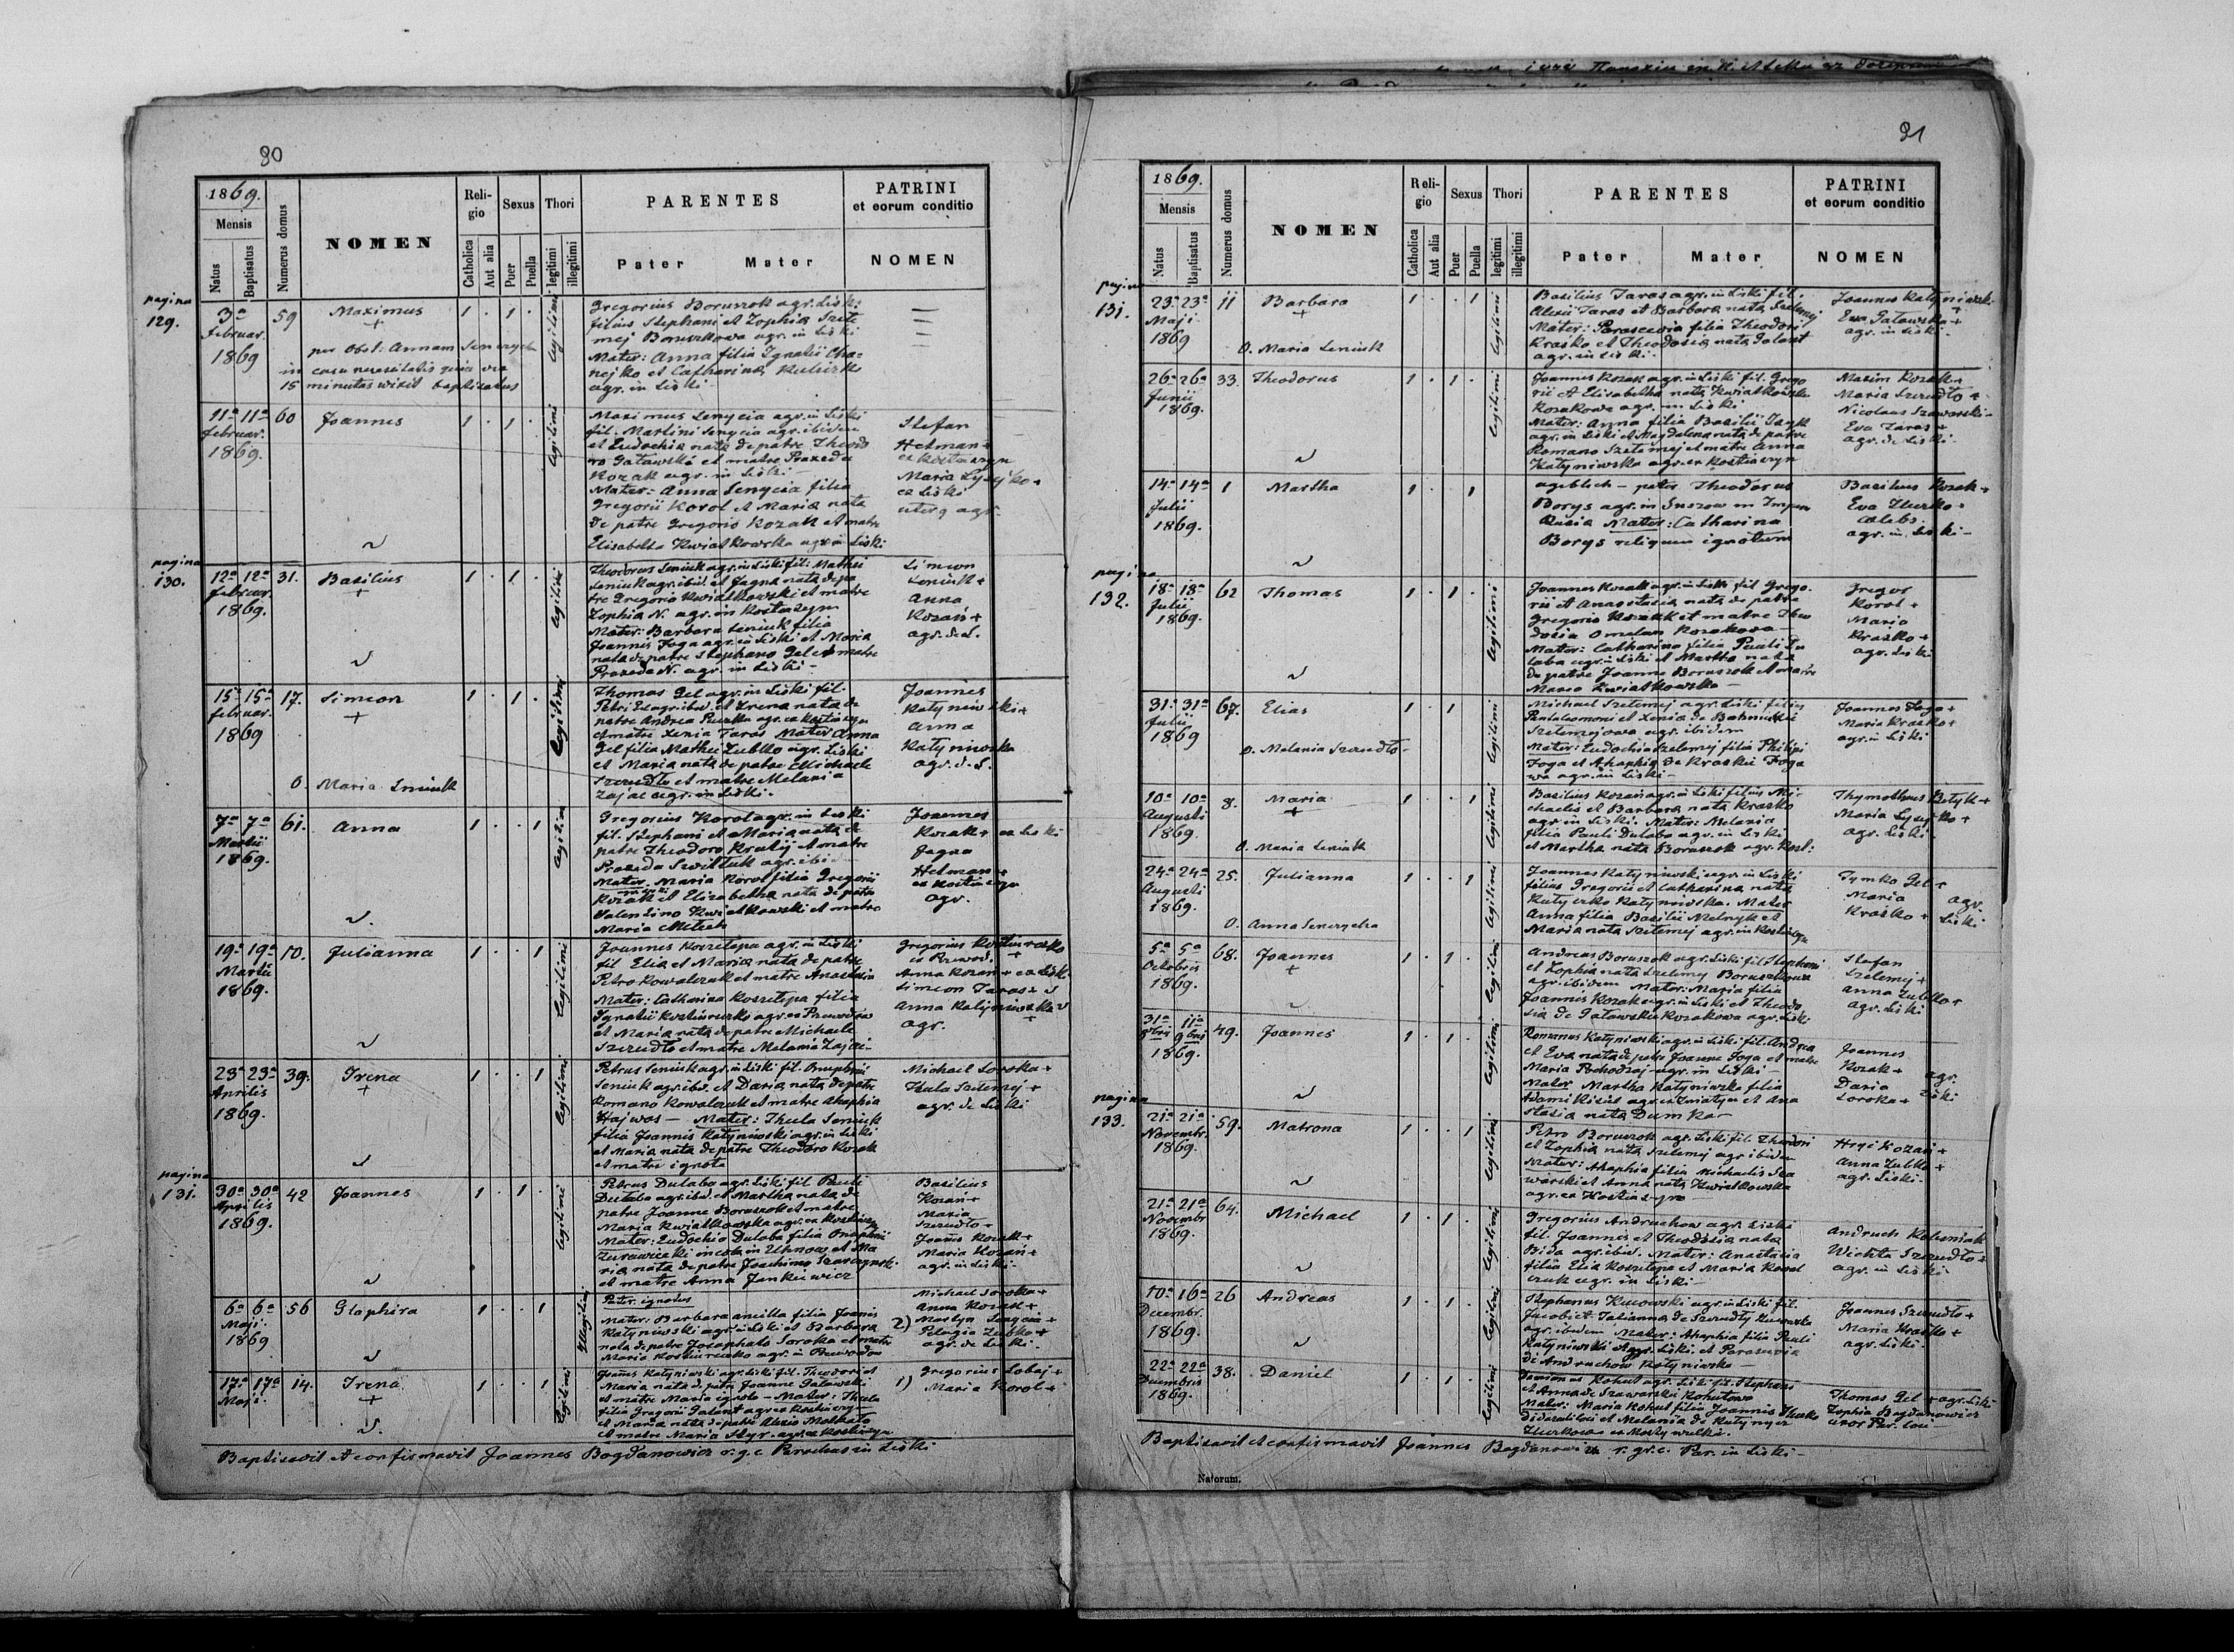 80
1869.
Mensis
Natus
Baptisatus
Numerus domus
NOMEN
Religio
Catholica
Aut alia
Sexus
Puer
Puella
Thori
legitimi
illegitimi
PARENTES
Pater Mater
PATRINI
et eorum conditio
NOMEN
pagina
129.
3a
februar.
1869
59
Maximus
+
per obst. Annam
in casu necessitatis quia vix
15 minutas vixit baptisatus
1 . 1 .
legitimi
Gregorius Boruszok agr. Liski
filius Stephani et Zophia Szele
mej Boruszkowa agr. in Liski
Mater: Anna filia Ignatii Cha=
nejko et Catharina
agr. in Liski
11a 11a 60
februar.
1869.
Joannes
1 . 1 .
legitimi
Maximus Senycia agr. in Liski
fil. Martini Senycia agr. ibidem
et Eudochia nata de patre Theodo
ro Gatawski et matre Praxeda
Kozak agr. in Liski
Mater: Anna Senycia filia
Gregorii Korol et Maria nata
de patre Gregorio Kozak et matre
Elisabetha Kwiatkowska agr. in Liski
Stefan
Hetman +
ex Kostiaszyn
Maria Lysejko +
ex Liski
uterq agr.
pagina
130.
12a 12a 31.
februar.
1869.
Basilius
+
1 . 1 .
legitimi
Theodorus Seniuk agr. in Liski fil. Mathei
Seniuk agr. ibid. et Jagna nata de pa
tre Gregorio Kwiatkowski et matre
Zophia N. agr. in Kostiaszyn
Mater: Barbara Seniuk filia
Joannis Foga agr. in Liski et Maria
nata de patre Stephano Gel et matre
Praxeda N. agr. in Liski
Simeon
Seniuk +
Anna
Kozań +
agr. de L.
15a 15a 17.
februar.
1869
Simeon
+
O. Maria Seniuk
1 . 1 .
legitimi
Thomas Gel agr. in Liski fil.
Petri Gel agr. ibid. et Irena nata de
patre Andrea agr. ex Kostiaszyn
et matre Xenia Taras Mater Anna
Gel filia Mathei Zubko agr. Liski
et Maria nata de patre Michaele
Szerudło et matre Melania
Zając agr. in Liski.
Joannes
Katyniwski +
Anna
Katyniwska
agr. d. L.
7a 7a 61.
Martii
1869.
Anna
1 . . 1
legitimi
Gregorius Korol agr. in Liski
fil. Stephani et Maria nata de
patre Theodoro Krulij et matre
Praxeda agr. ibid
Mater. Maria Korol filia Gregorii
Kozak et Elisabetha nata de patre
Valentino Kwiatkowski et matre
Maria
Joannes
Kozak + ex Liski
Jagna
Hetman +
ex Kostiaszyn
agr.
19a 19a 10.
Martii
1869.
Julianna
1 . . 1
legitimi
Joannes Koszelepa agr. in Liski
fil. Elia et Maria nata de patre
Petro Kowalczuk et matre Anastasia
Mater: Catharina Koszelepa filia
Ignatii agr. ex Przewodów
et Maria nata de patre Michaele
Szerudło et matre Melania Zając
Gregorius
ex Przewod. +
Anna Kozań + ex Lisk.
Simeon Taras +
Anna Katyniwska
agr.
23a 23a 39.
Aprilis
1869.
Irena
+
1 . . 1
legitimi
Petrus Seniuk agr. in Liski fil. Onuphrii
Seniuk agr. ibid. et Daria nata de patre
Romano Kowalczuk et matre Ahaphia
Hajwos — Mater: Thecla Seniuk
filia Joannis Katyniwski agr. in Liski
et Maria nata de patre Theodoro Kozak
et matre ignota
Michael Soroka +
Thecla Szelemej +
agr. de Liski
pagina
131.
30a 30a 42
Aprilis
1869.
Joannes
1 . 1 .
legitimi
Petrus Dulaba agr. Liski fil. Pauli
Dulaba agr. ibid. et Martha nata de
patre Joanne Boruszok et matre
Maria Kwiatkowska agr. ex Kostiaszyn
Mater: Eudochia Dulaba filia Onuphrii
Zurawiecki incola in Uhnow et Ma
ria nata de patre Joachimo
et matre Anna Jankiewicz
Basilius
Kozań +
Maria
Szerudło +
Joannes Kozak +
Maria Kozań +
agr. in Liski.
6a 6a 56
Maji.
1869
Glaphira
1 . . 1
illegitimi
Pater ignotus
Mater: Barbara ancilla filia Joannis
Katyniwski agr. in Liski et Barbara
nata de patre Josephato Soroka et matre
Maria agr. in Przewodow
Michael Soroka +
Anna Kozak +
2) Martyn Senycia +
Pelagia Zubko +
agr. de Liski.
17a 17a 14.
Maji.
Irena
+
1 . . 1
legitimi
Joannes Katyniwski agr. Liski fil. Theodori et
Maria nata de patre Joanne Gatawski
et matre Maria ignota — Mater: Thecla
filia Gregorii Galant agr. ex Kostiaszyn
et Maria nata de patre Alexio
et matre Maria Styr. agr. ex Kostiaszyn
1) Gregorius Sobaj +
Maria Korol +
Baptisavit et confirmavit Joannes Bogdanowicz r. g. c. Parochus in Liski
91
1869.
Mensis
Natus
Baptisatus
Numerus domus
NOMEN
Religio
Catholica
Aut alia
Sexus
Puer
Puella
Thori
legitimi
illegitimi
PARENTES
Pater Mater
PATRINI
et eorum conditio
NOMEN
pagina
131.
23a 23a 11
Maji
1869
Barbara
+
O. Maria Seniuk
1 . . 1
legitimi
Basilius Taras agr. in Liski fil.
Alexii Taras et Barbara nata Szelemej
Mater: Parascevia filia Theodori
Kraśko et Theodosia nata Galant
agr. in Liski.
Joannes Katyniwsk.
Eva Gatawska +
agr. in Liski.
26a 26a 33.
Junii
1869.
Theodorus
1 . 1 .
legitimi
Joannes Kozak agr. in Liski fil. Grego
rii et Elisabetha nata Kwiatkowska
Kozakowa agr. in Liski
Mater: Anna filia Basilii
agr. in Liski et Magdalena nata de patre
Romano Szelemej et matre Anna
Katyniwska agr. ex Kostiaszyn
Maxim Kozak +
Maria Szerudło +
Nicolaus Szawarski
Eva Taras +
agr. de Liski.
14a 14a 1
Julii
1869.
Martha
1 . 1
ageblich — pater Theodorus
Borys agr. in Suszow in Imper.
Rusia Mater: Catharina
Borys reliquum ignotum
Basilius Kozak +
Eva Zhurko +
caelebs.
agr. in Liski
pagina
132.
18a 18a 62
Julii
1869.
Thomas
1 . 1 .
legitimi
Joannes Kozak agr. in Liski fil. Grego.
rii et Anastasia nata de patre
Gregorio Kozak et matre Theo
dosia Omelan Kozakowa —
Mater: Catharina filia Pauli Du
laba agr. in Liski et Martha nata
de patre Joanne Boruszok et matre
Maria Kwiatkowska —
Gregor
Korol +
Maria
Kraśko +
agr. Liski
31a 31a 67.
Julii
1869
Elias
O. Melania Szerudło
1 . 1
legitimi
Michael Szelemej agr. Liski filius
Pantaleomoni et Xenia de
Szelemejowa agr. ibidem
Mater: Eudochia Szelemej filia Philipi
Foga et Ahaphia de Kraśkii Foga
wa agr. in Liski
Joannes Foga +
Maria Kraśko +
agr. in Liski
10a 10a 8.
Augusti
1869.
Maria
+
O. Maria Seniuk
1 . . 1
legitimi
Basilius Kozań agr. in Liski filius Mi
chaelis et Barbara nata Kraśko
agr. in Liski. Mater: Melania
filia Pauli Dulaba agr. in Liski
et Martha nata Boruszok agr. Kost:
Thymotheus +
Maria Lysejko +
agr. Liski.
24a 24a 25.
Augusti
1869.
Julianna
O. Anna Senczycha
1 . . 1
legitimi
Joannes Katyniwski agr. in Liski
filius Gregorii et Catharina nata
Katyniwska. Mater
Anna filia Basilii Melnyk et
Maria nata Szelemej agr. in Kostiaszyn
Tymko Gel +
Maria agr.
Kraśko + Liski.
5a 5a 68.
Octobris
1869.
Joannes
+
1 . 1 .
legitimi
Andreas Boruszok agr. Liski fil. Stephani
et Zophia nata Szelemej Boruszkowa
agr. ibidem Mater: Maria filia
Joannis Kozak agr. in Liski et Theodo
sia de Gatawskii Kozakowa agr. Liski
Stefan
Szelemej +
Anna Zubko +
agr. Liski
31a 11a 49.
8bris 9bris
1869.
Joannes
1 . 1 .
legitimi
Romanus Katyniwski agr. in Liski fil. Andrea
et Eva nata de patre Joanne Foga et matre
Maria Pochodzaj agr. in Liski —
Mater Martha Katyniwska filia
et Ana
stasia nata Dumka
Joannes
Kozak +
Daria agr.
Soroka + Liski
pagina
133.
21a 21a 59.
Novembr.
1869.
Matrona
1 . . 1
legitimi
Petro Boruszok agr. Liski fil. Theodori
et Zophia nata Szelemej agr. ibidem
Mater: Ahaphia filia Michaelis Sza
warski et Anna nata Kwiatkowska
agr. ex Kostiaszyn
Hryć Kozań +
Anna Zubko +
agr. Liski.
21a 21a 64.
Novembr
1869.
Michael
1 . 1 .
legitimi
Gregorius Andruchow agr. Liski
fil. Joannes et Theodosia nata
Bida agr. ibid. Mater: Anastasia
filia Elia Koszelepa et Maria Kowal
czuk agr. in Liski —
Andruch
Szerudło +
agr. in Liski
10a 16a 26
Decembr.
1869.
Andreas
1 . 1 .
legitimi
Stephanus agr. in Liski fil.
Jacobi et Tatianna de Szerudły
agr. ibidem Mater: Ahaphia filia Pauli
Katyniwski agr. Liski et Parascevia
de Andruchow Katyniwska —
Joannes Szerudło +
Maria Kraśko +
agr. Liski.
22a 22a 38.
Decembris
1869.
Daniel
1 . 1 .
legitimi
Damianus Kohut agr. Liski fil. Stephani
et Anna de Szawarskii Kohutowa
Mater: Maria Kohut filia Joannis Zhurko
et Melania de
Zhurkowa ex Mosty wielki.
Thomas Gel + agr. Liski
Zophia Bogdanowicz
uxor Par. loci
Baptisavit et confirmavit Joannes Bogdanowicz r. gr. c. Par. in Liski —
Natorum.